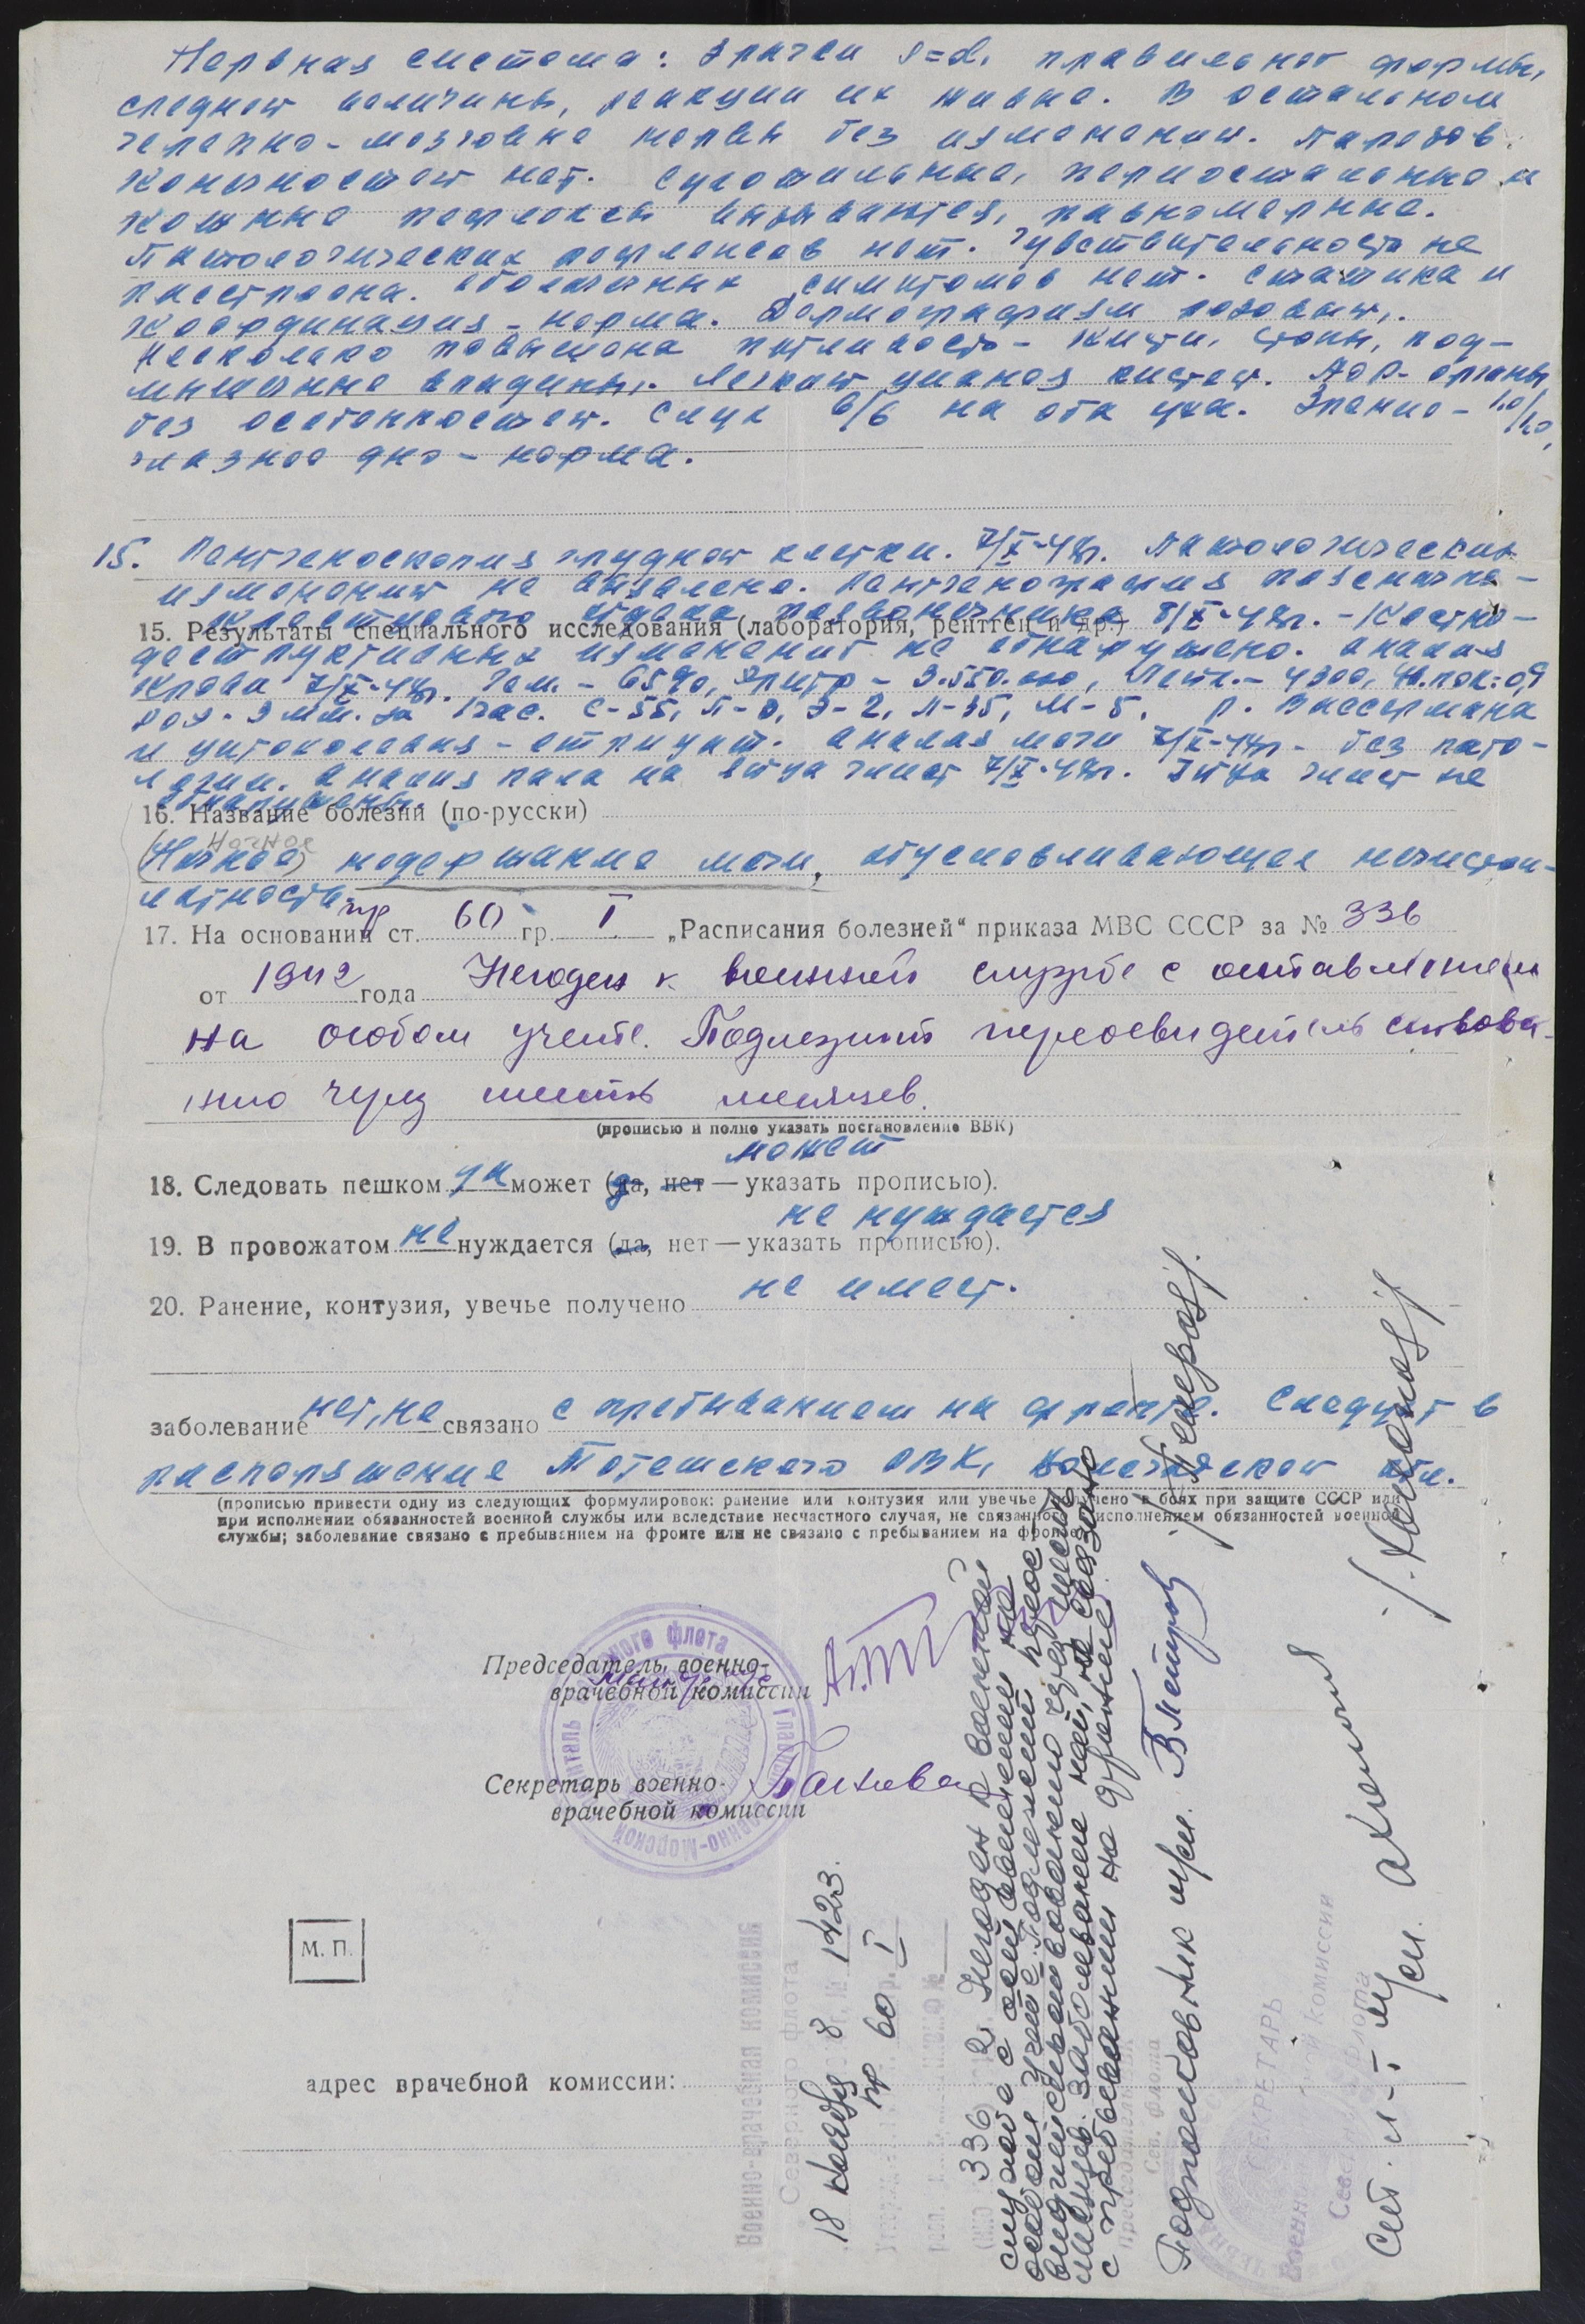 Нервная система: зрачки s=d, правильной формы,
средней величины, реакции их живые. В остальном
черепно-мозговые нервы без изменений. Парезов
конечностей нет. Сухожильные, периостальные и
кожные рефлексы вызываются, равномерные.
Патологических рефлексов нет. Чувствительность не
расстроена. Оболочечных симптомов нет. Статика и
координация - норма. Дермографизм розовый,
несколько повышена потливость - кисти, стопы, под-
мышечные впадины. Легкий цианоз кистей. ЛОР-органы
без особенностей. Слух 6/6 на оба уха. Зрение - 1,0/1,0,
глазное дно - норма.
15. Рентгеноскопия грудной клетки. 7/X-48г. Патологических
изменений не выявлено. Рентгенография пояснично-
крестцового отдела позвоночника 8/X-48г. - Костно-
15. Результаты специального исследования (лаборатория, рентген и др.)
деструктивных изменений не обнаружено. Анализ
крови 7/X-48г. Гем. - 65%, Эритр - 3.550.000, Лейк. - 4300, Ц.пок: 0,9
РОЭ - 9 мм. за 1 час. С-55, П-3, Э-2, Л-35, М-5. Р. Вассермана
и цитохолевая - отрицат. Анализ мочи 7/X-48г - без пато-
логии. Анализ кала на яйца глист 7/X-48г. Яйца глист не
обнаружены.
16. Название болезни (по-русски)
Ночное
(Ночное) недержание мочи, обуславливающее неопрят-
ность.
17. На основании ст. гр 60 гр. I „Расписания болезней“ приказа МВС СССР за № 336
от 1942 года Негоден к военной службе с оставлением
на особом учете. Подлежит переосвидетельствова-
нию через шесть месяцев.
(прописью и полно указать постановление ВВК)
может
18. Следовать пешком да может (да, нет — указать прописью).
не нуждается
19. В провожатом не нуждается (да, нет — указать прописью).
20. Ранение, контузия, увечье получено не имеет.
заболевание нет, не связано с пребыванием на фронте. Следует в
распоряжение Тотемского ОВК, Вологодской обл.
(прописью привести одну из следующих формулировок: ранение или контузия или увечье получено в боях при защите СССР или
при исполнении обязанностей военной службы или вследствие несчастного случая, не связанного с исполнением обязанностей военной
службы; заболевание связано с пребыванием на фронте или не связано с пребыванием на фронте)
Председатель военно-
врачебной комиссии
Секретарь военно-
врачебной комиссии
М. П.
адрес врачебной комиссии:
Военно-врачебная комиссия
Северного флота
18 ноября 8 № 1423.
гр 60 гр. I
336 2. Негоден к военной
службе с оставлением на
особом учете. Подлежит переос-
видетельствованию через шесть
месяцев. Заболевание не связано
с пребыванием на фронте.
Председатель
Сев. флота
Подполковник м/сл. Петров
СЕКРЕТАРЬ
Военно-врачебной комиссии
Северного флота
Ст. л-т м/сл.